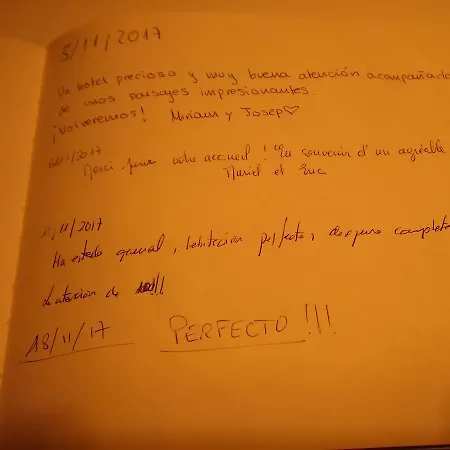 5/11/2017
Un hotel precioso y muy buena atención acompañado
de unos paisajes impresionantes.
¡Volveremos! Miriam y Josep♡
11/2017
Merci pour votre accueil ! En souvenir d'un agréable
Muriel et Luc
11/11/2017
Ha estado genial, habitación perfecta, desayuno completo
La atención de !!!
18/11/17 PERFECTO!!!